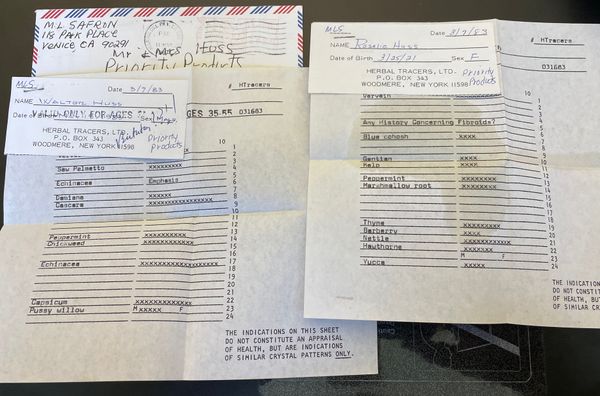 M.L SAFRON
118 PARK PLACE
VENICE CA 90291
PM
Mr & Mrs Huss
Priority Products
MLS
Date 3/7/83
NAME Walter Huss
VALID ONLY FOR AGES 35-55 031683
# HTracers
Date of Birth
Sex M
HERBAL TRACERS, LTD.
P.O. BOX 343
WOODMERE, NEW YORK 11598
Priority
Products
10
1
2
3
4
Saw Palmetto xxxxxxxxxx 5
6
Echinacea Emphasis 7
Damiana xxxxxxxxxx 8
Cascara xxxxxxxxxxxxxxx 9
10
11
12
Peppermint xxxxxxxxxx 13
Chickweed xxxxxxxxxxxx 14
15
16
Echinacea xxxxxxxxxxxxxxxx 17
18
19
20
21
Capsicum xxxxxxxxxxx 22
Pussy willow M xxxxx F 23
24
THE INDICATIONS ON THIS SHEET
DO NOT CONSTITUTE AN APPRAISAL
OF HEALTH, BUT ARE INDICATIONS
OF SIMILAR CRYSTAL PATTERNS ONLY.
MLS
Date 3/7/83
NAME Rosalie Huss
# HTracers
Date of Birth 3/25/21 Sex F
031683
HERBAL TRACERS, LTD.
P.O. BOX 343
WOODMERE, NEW YORK 11598
Priority
Products
Vervain
10
1
2
Any History Concerning Fibroids? 3
4
Blue cohosh xxxx 5
6
7
8
Gentian xxxx 9
Kelp xxxx 10
11
Peppermint xxxxxxxxxx 12
Marshmallow root xxxxxxxxxxx 13
14
15
16
17
Thyme xxxxxxx 18
Barberry xxxx 19
Nettle xxxxxxxxxxx 20
Hawthorne xxxxxxx 21
M F 22
23
Yucca xxxx 24
THE INDICATIONS
DO NOT CONSTIT
OF HEALTH, BUT
OF SIMILAR CRYS